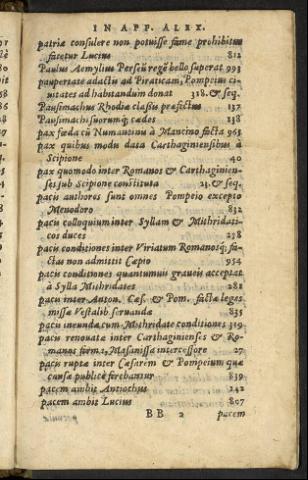 IN APP. ALEX.
patriæ consulere non potuisse fame prohibitus
fatetur Lucius 812
Paulus Aemylius Perseū regē bello superat 993
paupertate adactū ad Piraticam, Pompeius ci
uitates ad habitandum donat 318. & seq.
Pausimachus Rhodiæ classis præfectus 137
Pausimachi suorumq; cædes 138
pax fœda cū Numantinis à Mancino facta 963
pax quibus modis data Carthaginensibus à
Scipione 40
pax quomodo inter Romanos & Carthaginen-
ses sub Scipione constituta 21. & seq.
pacis authores sunt omnes Pompeio excepto
Menodoro 832
pacis colloquium inter Syllam & Mithridati-
cos duces 278
pacis conditiones inter Viriatum Romanosq; fa-
ctas non admittit Cæpio 954
pacis conditiones quantumuis graueis acceptat
à Sylla Mithridates 281
pacis inter Anton. Cæs. & Pom. factæ leges
missæ Vestalib. seruandæ 835
pacis ineundæ cum Mithridate conditiones 319
pacis renouatæ inter Carthaginenses & Ro-
manos firma, Masanissa intercessore 27
pacis ruptæ inter Cæsarem & Pompeium quæ
causæ publicè ferebantur 839
pacem ambit Antiochus 242
pacem ambit Lucius 807
BB 2 pacem